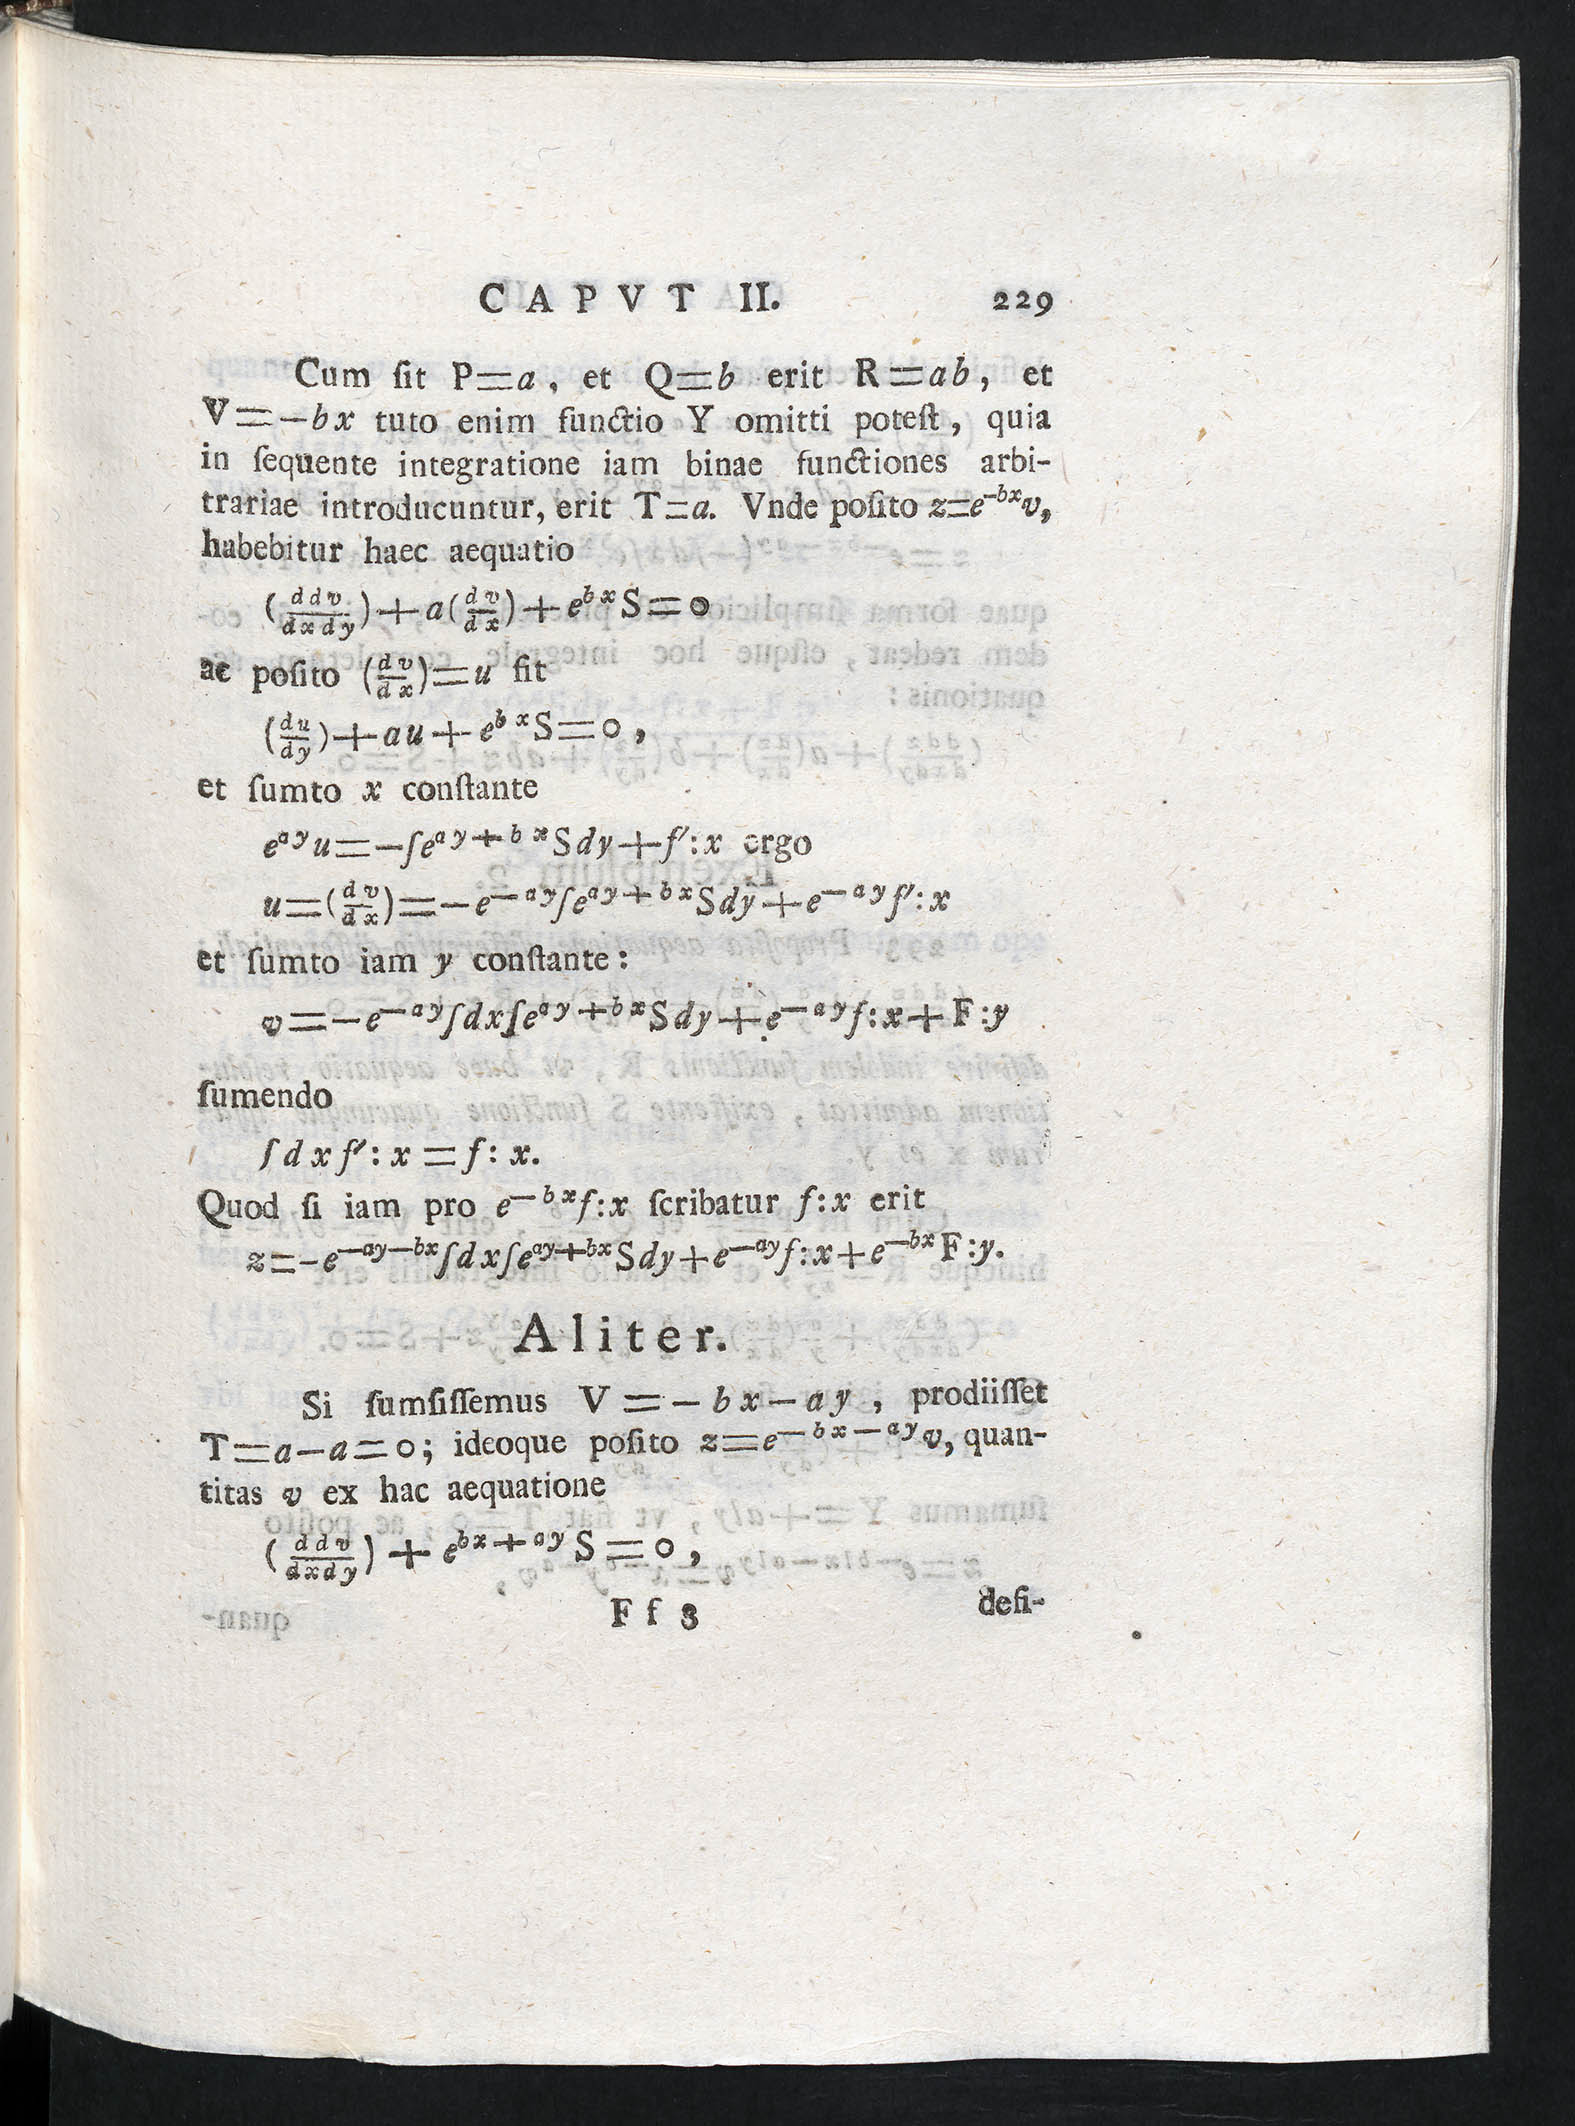 CAPVT II. 229
Cum ſit P=a, et Q=b erit R=ab, et
V=-bx tuto enim functio Y omitti poteſt, quia
in ſequente integratione iam binae functiones arbi-
trariae introducuntur, erit T=a. Vnde poſito z=e^{-bx}v,
habebitur haec aequatio
(\frac{ddv}{dxdy})+a(\frac{dv}{dx})+e^{bx}S=0
ac poſito (\frac{dv}{dx})=u fit
(\frac{du}{dy})+au+e^{bx}S=0,
et ſumto x conſtante
e^{ay}u=-∫e^{ay+bx}Sdy+f':x ergo
u=(\frac{dv}{dx})=-e^{-ay}∫e^{ay+bx}Sdy+e^{-ay}f':x
et ſumto iam y conſtante:
v=-e^{-ay}∫dx∫e^{ay+bx}Sdy+e^{-ay}f:x+F:y
ſumendo
∫dxf':x=f:x.
Quod ſi iam pro e^{-bx}f:x ſcribatur f:x erit
z=-e^{-ay-bx}∫dx∫e^{ay+bx}Sdy+e^{-ay}f:x+e^{-bx}F:y.
Aliter.
Si ſumſiſſemus V=-bx-ay, prodiiſſet
T=a-a=0; ideoque poſito z=e^{-bx-ay}v, quan-
titas v ex hac aequatione
(\frac{ddv}{dxdy})+e^{bx+ay}S=0,
Ff 3 defi-